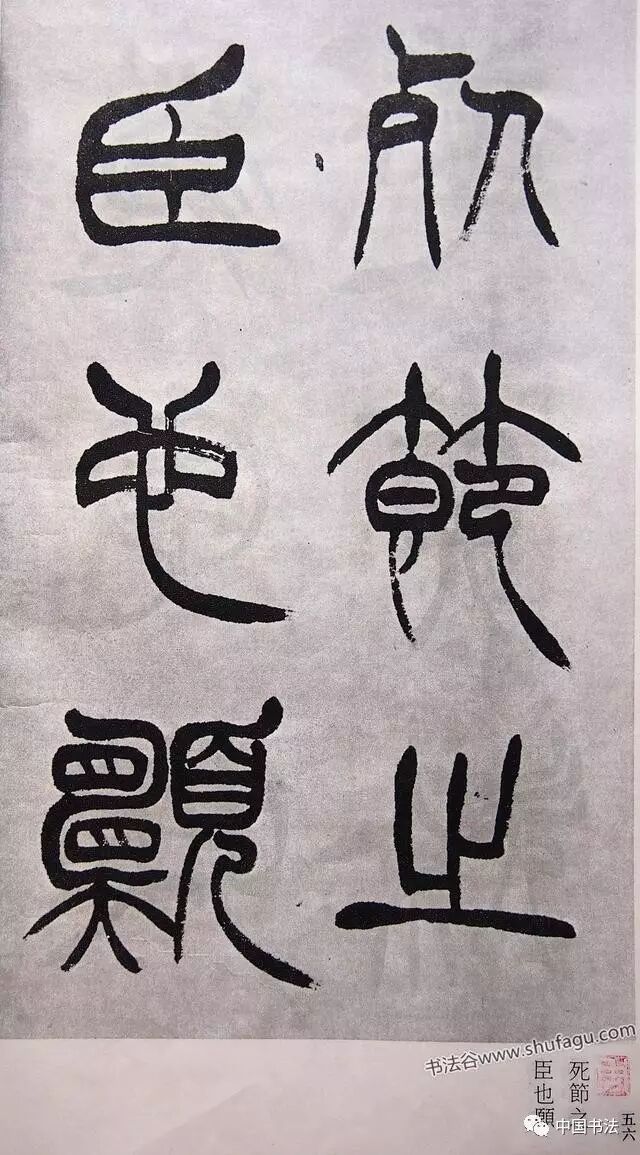 死節之
臣也願
书法谷www.shufagu.com
死節之
臣也願
五六
中国书法